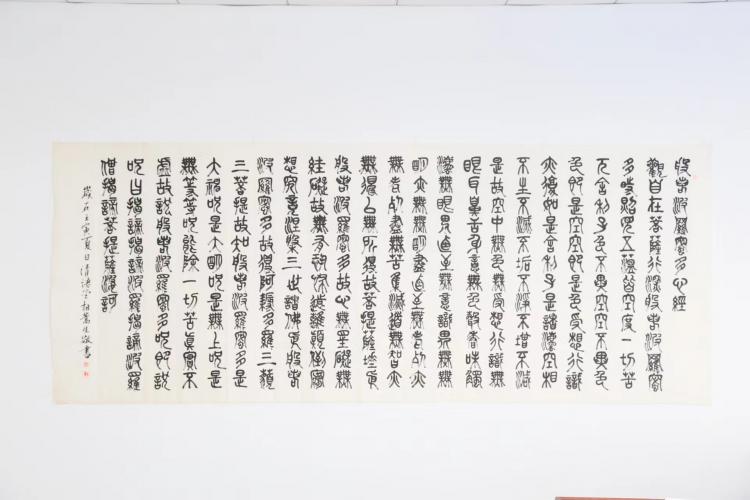 般若波羅蜜多心經
觀自在菩薩行深般若波羅蜜
多時照見五蘊皆空度一切苦
厄舍利子色不異空空不異色
色即是空空即是色受想行識
亦復如是舍利子是諸法空相
不生不滅不垢不淨不增不減
是故空中無色無受想行識無
眼耳鼻舌身意無色聲香味觸
法無眼界乃至無意識界無無
明亦無無明盡乃至無老死亦
無老死盡無苦集滅道無智亦
無得以無所得故菩提薩埵依
般若波羅蜜多故心無罣礙無
罣礙故無有恐怖遠離顛倒夢
想究竟涅槃三世諸佛依般若
波羅蜜多故得阿耨多羅三藐
三菩提故知般若波羅蜜多是
大神咒是大明咒是無上咒是
無等等咒能除一切苦真實不
虛故說般若波羅蜜多咒即說
咒曰揭諦揭諦波羅揭諦波羅
僧揭諦菩提薩婆訶
歲在壬寅夏日敬書